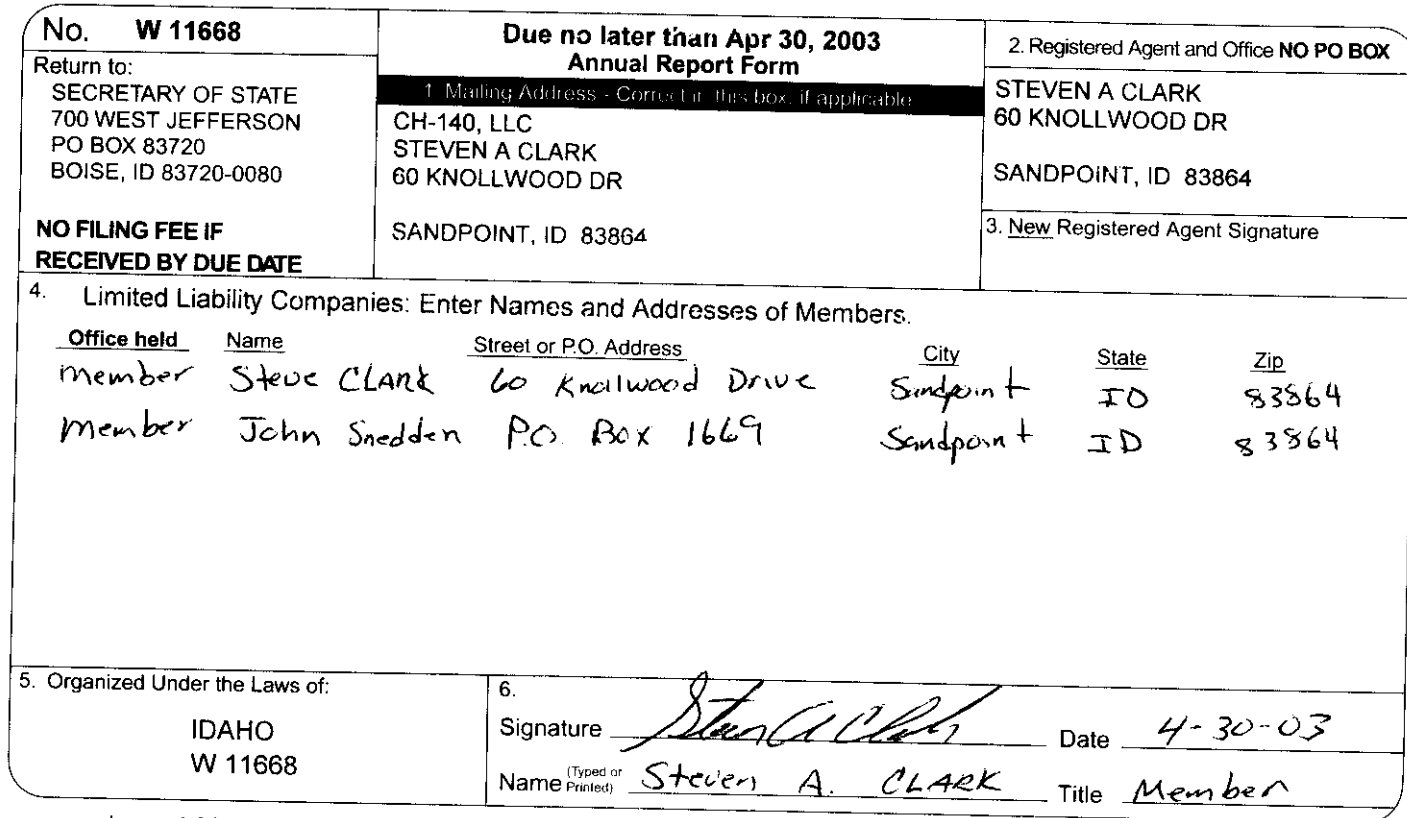 No. W 11668
Return to:
SECRETARY OF STATE
700 WEST JEFFERSON
PO BOX 83720
BOISE, ID 83720-0080
NO FILING FEE IF
RECEIVED BY DUE DATE
Due no later than Apr 30, 2003
Annual Report Form
1. Mailing Address - Correct in this box, if applicable
CH-140, LLC
STEVEN A CLARK
60 KNOLLWOOD DR
SANDPOINT, ID 83864
2. Registered Agent and Office NO PO BOX
STEVEN A CLARK
60 KNOLLWOOD DR
SANDPOINT, ID 83864
3. New Registered Agent Signature
4. Limited Liability Companies: Enter Names and Addresses of Members.
Office held Name Street or P.O. Address City State Zip
Member Steve CLARK 60 Knollwood Drive Sandpoint ID 83864
Member John Snedden P.O. Box 1669 Sandpoint ID 83864
5. Organized Under the Laws of:
IDAHO
W 11668
6.
Signature Steven A Clark Date 4-30-03
Name (Typed or Printed) Steven A. CLARK Title Member